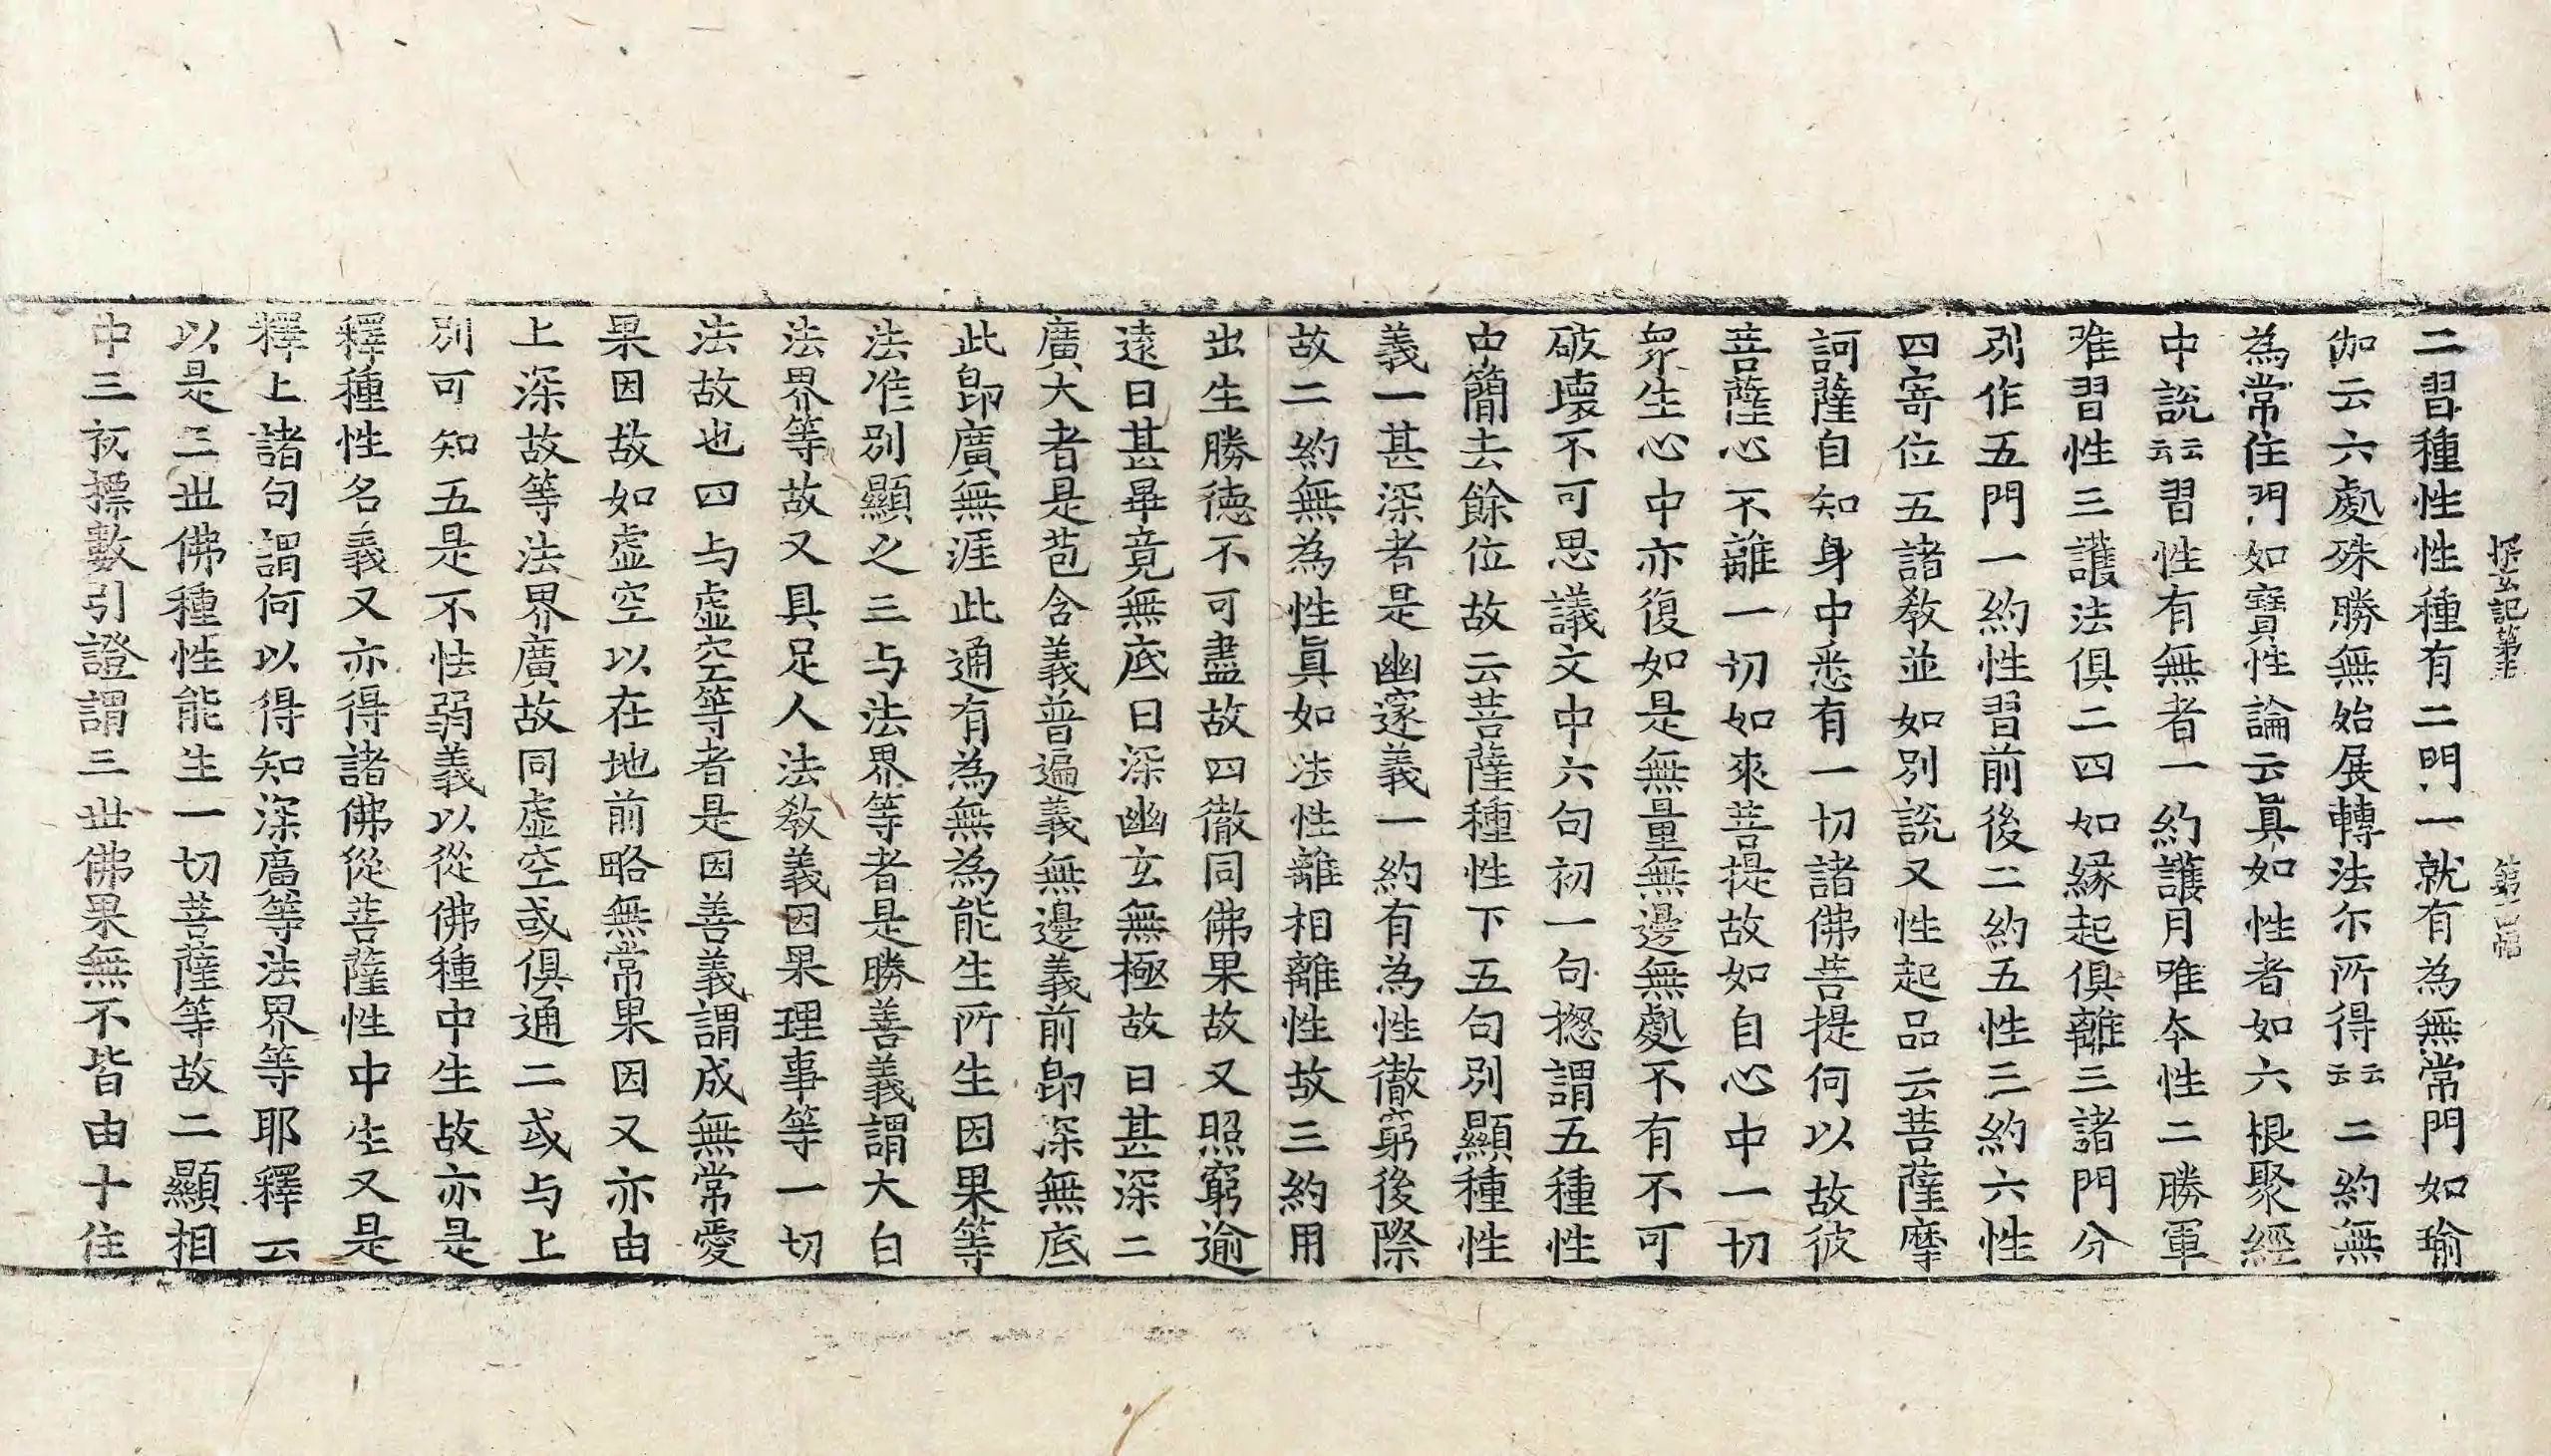 探玄記第五 第
二習種性性種有二門一就有為無常門如瑜
伽云六處殊勝無始展轉法尒所得云云二約無
為常住門如寶性論云真如性者如六根聚經
中說云云習性有無者一約護月唯本性二勝軍
唯習性三護法俱二四如緣起俱離三諸門分
別作五門一約性習前後二約五性三約六性
四寄位五諸教並如別說又性起品云菩薩摩
訶薩自知身中悉有一切諸佛菩提何以故彼
菩薩心不離一切如來菩提故如自心中一切
眾生心中亦復如是無量無邊無處不有不可
破壞不可思議文中六句初一句揔謂五種性
中簡去餘位故云菩薩種性下五句別顯種性
義一甚深者是幽邃義一約有為性徹窮後際
故二約無為性真如法性離相離性故三約用
出生勝德不可盡故四徹同佛果故又照窮逾
遠曰甚畢竟無底曰深幽玄無極故曰甚深二
廣大者是苞含義普遍義無邊義前即深無底
此即廣無涯此通有為無為能生所生因果等
法准別顯之三与法界等者是勝善義謂大白
法界等故又具足人法教義因果理事等一切
法故也四与虛空等者是因善義謂成無常愛
果因故如虛空以在地前略無常果因又亦由
上深故等法界廣故同虛空或俱通二或与上
別可知五是不怯弱義以從佛種中生故亦是
釋種性名義又亦得諸佛從菩薩性中生又是
釋上諸句謂何以得知深廣等法界等耶釋云
以是三世佛種性能生一切菩薩等故二顯相
中三初摽數引證謂三世佛果無不皆由十住